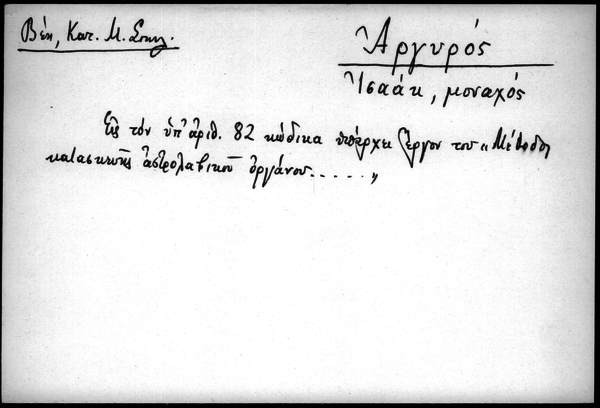 Βέη, Κατ. Μ. Σπηλ.
Ἀργυρός
Ἰσαάκ, μοναχός
Εἰς τόν ὑπ' ἀριθ. 82 κώδικα ὑπάρχει ἔργον του „Μέθοδος
κατασκευῆς ἀστρολαβικοῦ ὀργάνου......„